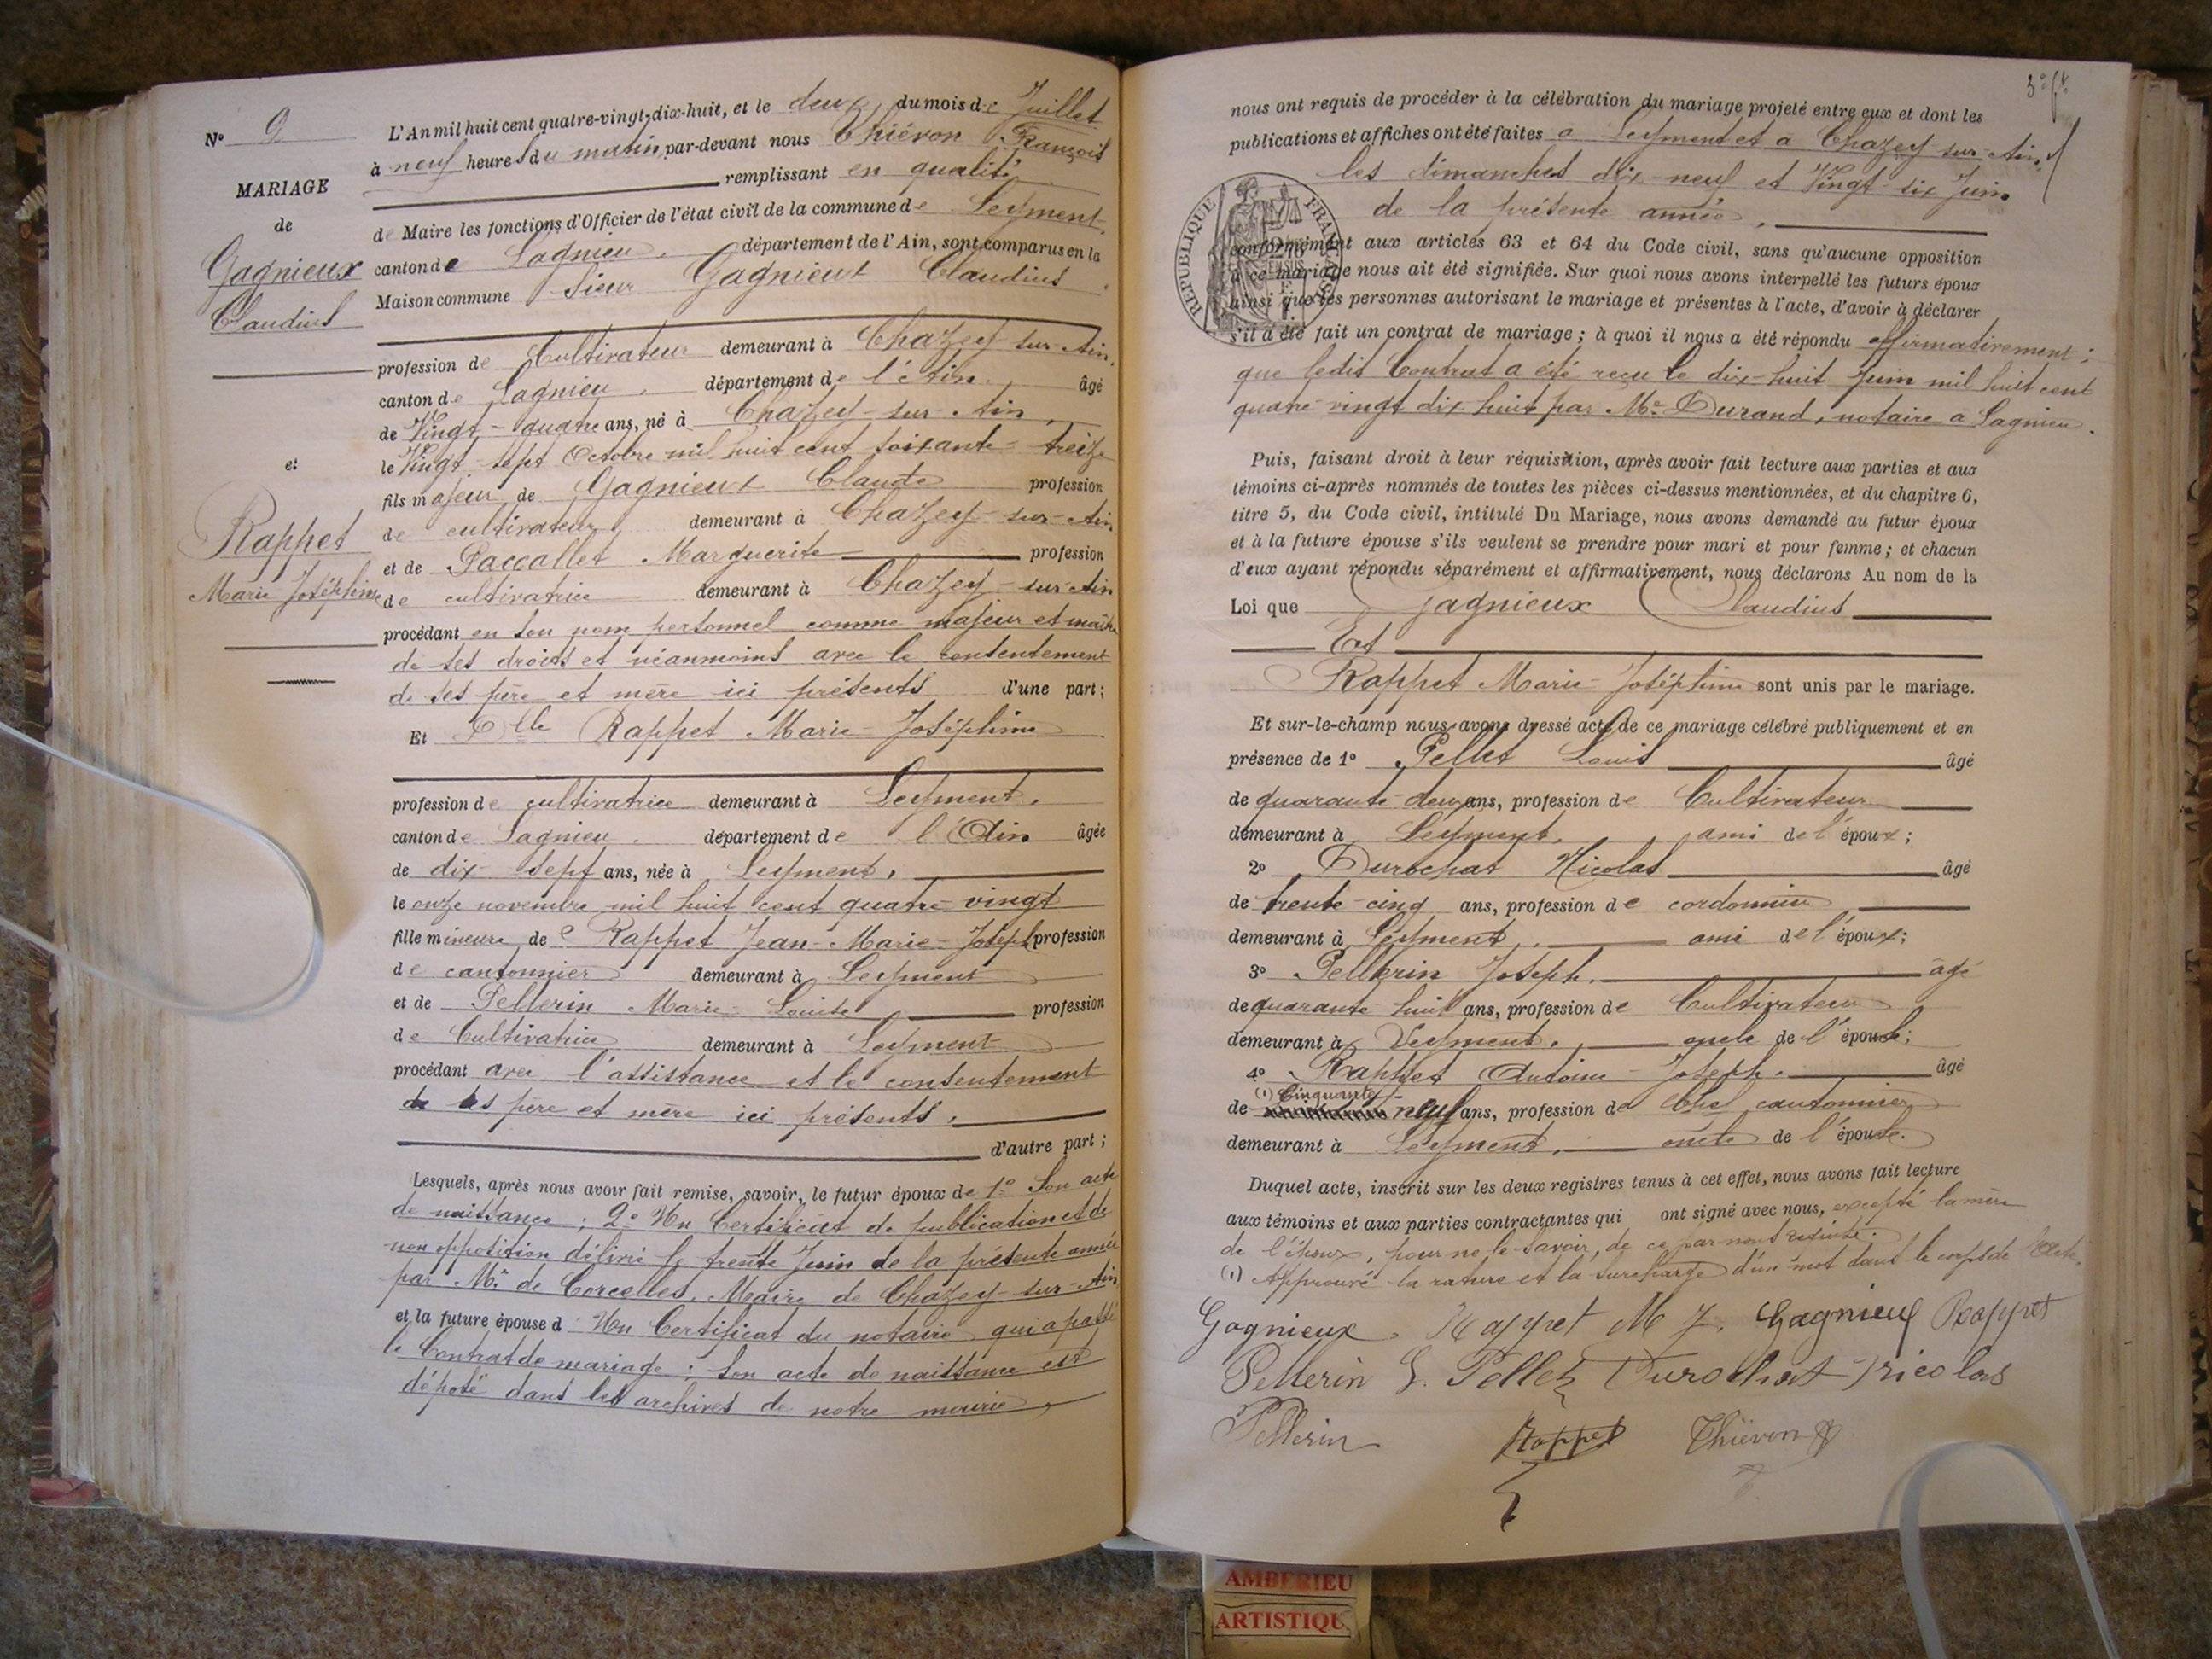 N° 9
MARIAGE
de
Gagnieux
Claudius
et
Rappet
Marie Joséphine
L'An mil huit cent quatre-vingt-dix-huit, et le deux du mois de Juillet
à neuf heures du matin par-devant nous Thiévon François
remplissant en qualité
de Maire les fonctions d'Officier de l'état civil de la commune de Leyment.
canton de Lagnieu, département de l'Ain, sont comparus en la
Maison commune Sieur Gagnieux Claudius
profession de Cultivateur demeurant à Chazey-sur-Ain,
canton de Lagnieu, département de l'Ain, âgé
de Vingt-quatre ans, né à Chazey-sur-Ain,
le Vingt-sept Octobre mil huit cent soixante-treize
fils majeur de Gagnieux Claude profession
de cultivateur, demeurant à Chazey-sur-Ain,
et de Paccallet Marguerite profession
de cultivatrice demeurant à Chazey-sur-Ain
procédant en son nom personnel comme majeur et maître
de ses droits et néanmoins avec le consentement
de ses père et mère ici présents d'une part;
Et Dlle Rappet Marie-Joséphine
profession de cultivatrice demeurant à Leyment,
canton de Lagnieu. département de l'Ain âgée
de dix-sept ans, née à Leyment,
le onze novembre mil huit cent quatre-vingt
fille mineure de Rappet Jean-Marie-Joseph profession
de cantonnier demeurant à Leyment
et de Pellerin Marie-Louise profession
de Cultivatrice demeurant à Leyment
procédant avec l'assistance et le consentement
de ses père et mère ici présents.
d'autre part;
Lesquels, après nous avoir fait remise, savoir, le futur époux de 1° Son acte
de naissance; 2° Un Certificat de publication et de
non opposition délivré le trente Juin de la présente année
par Mr de Corcelles, Maire de Chazey-sur-Ain
et la future épouse d Un Certificat du notaire qui a passé
le Contrat de mariage; Son acte de naissance est
déposé dans les archives de notre mairie,
nous ont requis de procéder à la célébration du mariage projeté entre eux et dont les
publications et affiches ont été faites à Leyment et à Chazey-sur-Ain,
les dimanches dix-neuf et Vingt-six Juin
de la présente année,
RÉPUBLIQUE FRANÇAISE
conformément aux articles 63 et 64 du Code civil, sans qu'aucune opposition
à ce mariage nous ait été signifiée. Sur quoi nous avons interpellé les futurs époux
ainsi que les personnes autorisant le mariage et présentes à l'acte, d'avoir à déclarer
s'il a été fait un contrat de mariage; à quoi il nous a été répondu affirmativement;
que ledit Contrat a été reçu le dix-huit Juin mil huit cent
quatre-vingt dix huit par Me Durand, notaire à Lagnieu.
Puis, faisant droit à leur réquisition, après avoir fait lecture aux parties et aux
témoins ci-après nommés de toutes les pièces ci-dessus mentionnées, et du chapitre 6,
titre 5, du Code civil, intitulé Du Mariage, nous avons demandé au futur époux
et à la future épouse s'ils veulent se prendre pour mari et pour femme; et chacun
d'eux ayant répondu séparément et affirmativement, nous déclarons Au nom de la
Loi que Gagnieux Claudius
Et
Rappet Marie-Joséphine sont unis par le mariage.
Et sur-le-champ nous avons dressé acte de ce mariage célébré publiquement et en
présence de 1° Pellet Louis âgé
de quarante-deux ans, profession de Cultivateur
demeurant à Leyment, ami de l'époux;
2° Durochat Nicolas âgé
de trente-cinq ans, profession de cordonnier
demeurant à Leyment, ami de l'époux;
3° Pellerin Joseph, âgé
de quarante-huit ans, profession de Cultivateur
demeurant à Leyment, oncle de l'épouse;
4° Rappet Antoine-Joseph, âgé
(1) Cinquante-
de neuf ans, profession de Chef cantonnier
demeurant à Leyment, oncle de l'épouse.
Duquel acte, inscrit sur les deux registres tenus à cet effet, nous avons fait lecture
aux témoins et aux parties contractantes qui ont signé avec nous, excepté la mère
de l'époux, pour ne le savoir, de ce par nous requise.
(1) Approuvé la rature et la surcharge d'un mot dans le corps de l'acte.
Gagnieux. Rappet M J. Gagnieux Rappet
Pellerin L. Pellet Durochat Nicolas
Pellerin Rappet Thiévon
AMBERIEU
ARTISTIQU